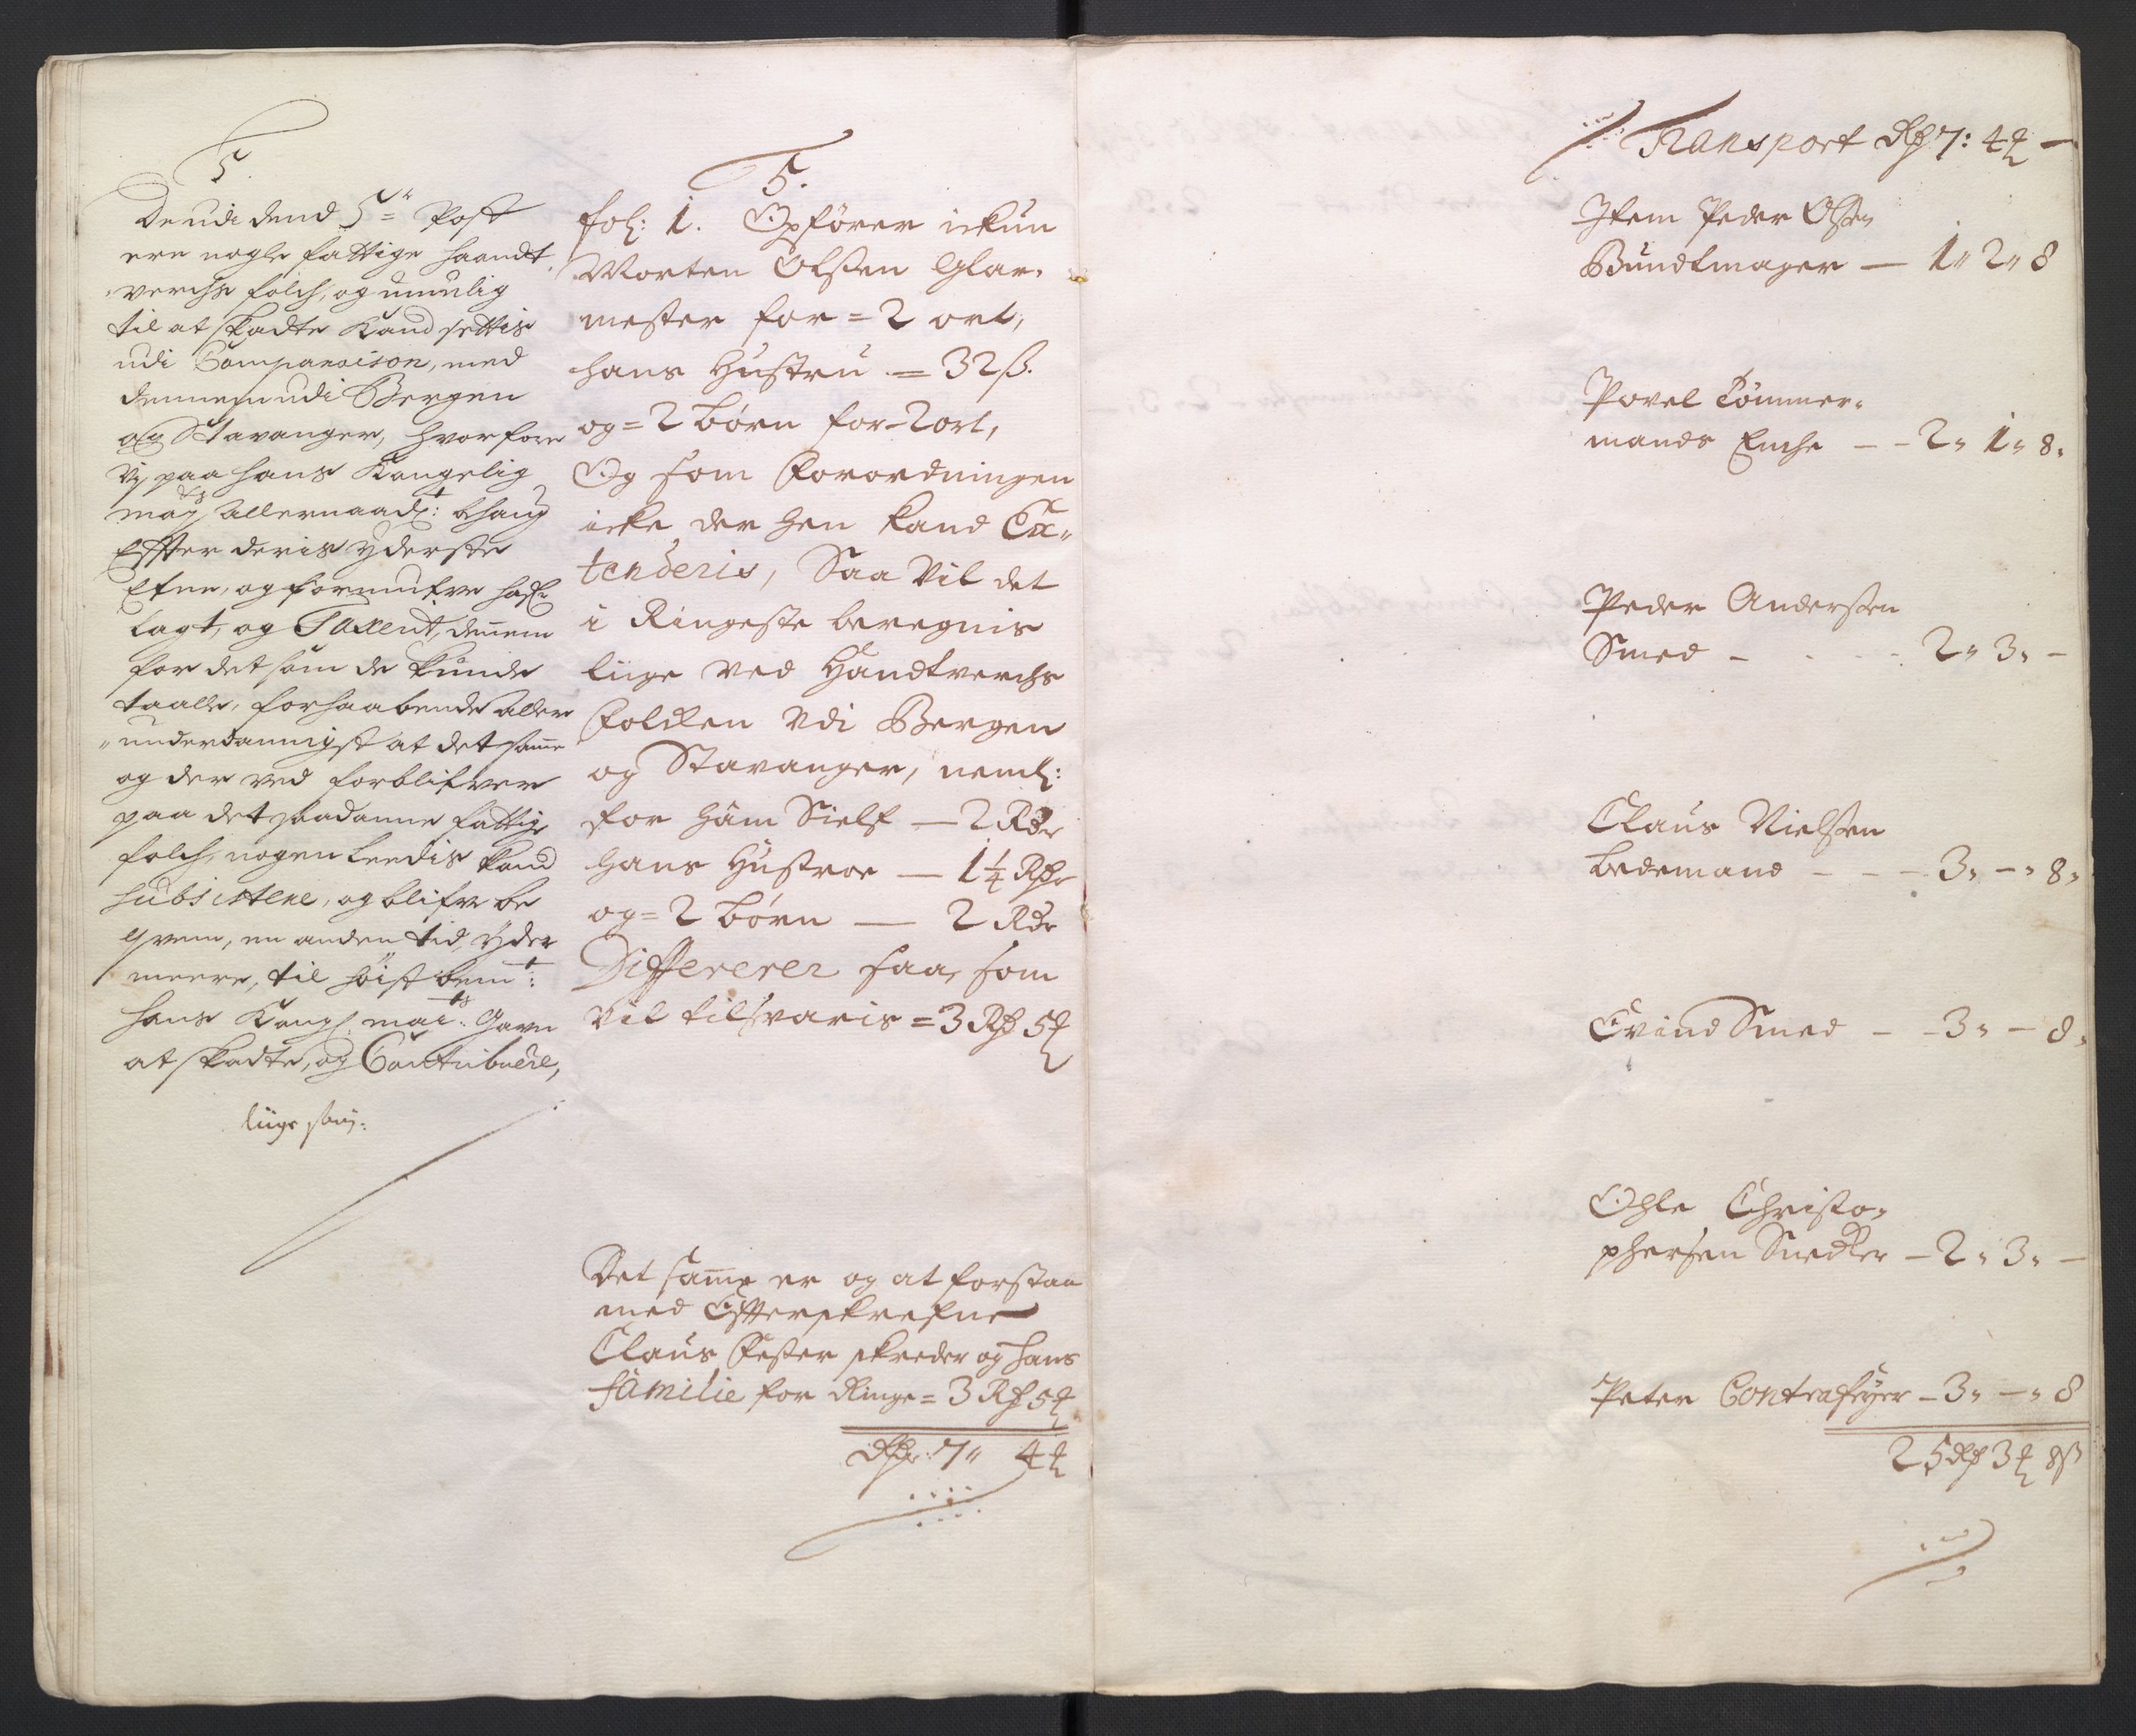 5.
De udi dend 5te Post
ere nogle fattige haandt
verchs folch, og umulig
til at skadte kand settis
udi Comparaison, med
dennem udi Bergen
og Stavanger, hvorfore
Vj paa hans Kongelig
may:ts allernaadg:t behaug
Effter deris yderste
Efne, og formufve hafr
lagt, og Taxent, dennem
for det som de kunde
taalle, forhaabende aller
underdannigst at det samme
og der ved forblifver
paa det saadanne fattige
folch, nogenleedis kand
subsistere, og blifve be
qvem, en anden tid, yder
meere, til höist bem:t
hans Kongl. mai:ts Gavn
at skadte, og Contribuere,
5.
fol: 1. Opförer ickun
Morten Olssen Glar-
mester for = 2 ort,
hans Hustru = 32 ß.
og = 2 börn for - 2 ort,
Og som Forordningen
icke der hen kand Ex-
tenderis, Saa vil det
i Ringeste beregnis
liige ved Handtverchs
Folcken udi Bergen
og Stavanger, neml:
for ham Sielf — 2 Rdr
hans Hustroe — 1¼ Rdr
og = 2 börn — 2 Rdr
Differerer saa, som
vil tilsvaris = 3 Rd 5 ꝑ
Det samme er og at forstaa
med Effterskrefne
Claus Fester skreder og hans
familie for Ringe = 3 Rd 5 ꝑ
Rdr: 7 " 4 ꝑ
Transport Rd 7: 4 ꝑ —
Item Peder Olsen
Bundtmager — 1 " 2 " 8
Povel Tömmer-
mands Enche — - 2 " 1 " 8 "
Peder Anderssen
Smed - - - - 2 " 3 " —
Claus Nielssen
bedemand - - - 3 " — " 8 "
Evind Smed - - 3 " — 8 "
Ohle Christo-
phersen Snedker — 2 " 3 " —
Peter Contrafeyer — 3 " — " 8
25 Rd 3 ꝑ 8 ß